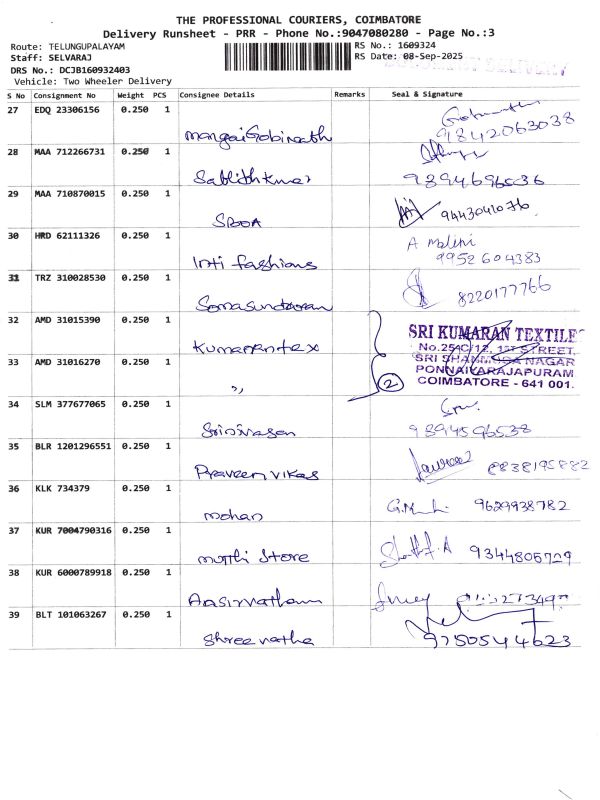 THE PROFESSIONAL COURIERS, COIMBATORE
Delivery Runsheet - PRR - Phone No.:9047080280 - Page No.:3
Route: TELUNGUPALAYAM
RS No.: 1609324
Staff: SELVARAJ
RS Date: 08-Sep-2025
DRS No.: DCJB160932403
Vehicle: Two Wheeler Delivery
S No Consignment No Weight PCS Consignee Details Remarks Seal & Signature
27 EDQ 23306156 0.250 1
MangaiGobinath 9842063038
28 MAA 712266731 0.250 1
Sablithkumar 9894696536
29 MAA 710870015 0.250 1
SBOA 9443041076
30 HRD 62111326 0.250 1
Inti fashions A Malini
9952604383
31 TRZ 310028530 0.250 1
Somasundaran 8220177766
32 AMD 31015390 0.250 1
Kumarantex
SRI KUMARAN TEXTILE
No.254C/12, 1ST STREET,
SRI SHANMUGA NAGAR
PONNAIYARAJAPURAM
COIMBATORE - 641 001.
33 AMD 31016270 0.250 1
,, 2
34 SLM 377677065 0.250 1
Srinivasan 9894596538
35 BLR 1201296551 0.250 1
Praveen vikas 8838195882
36 KLK 734379 0.250 1
mohan 9629938782
37 KUR 7004790316 0.250 1
mutti store 9344805729
38 KUR 6000789918 0.250 1
Aasirvatham
39 BLT 101063267 0.250 1
Shree natha 9750544623